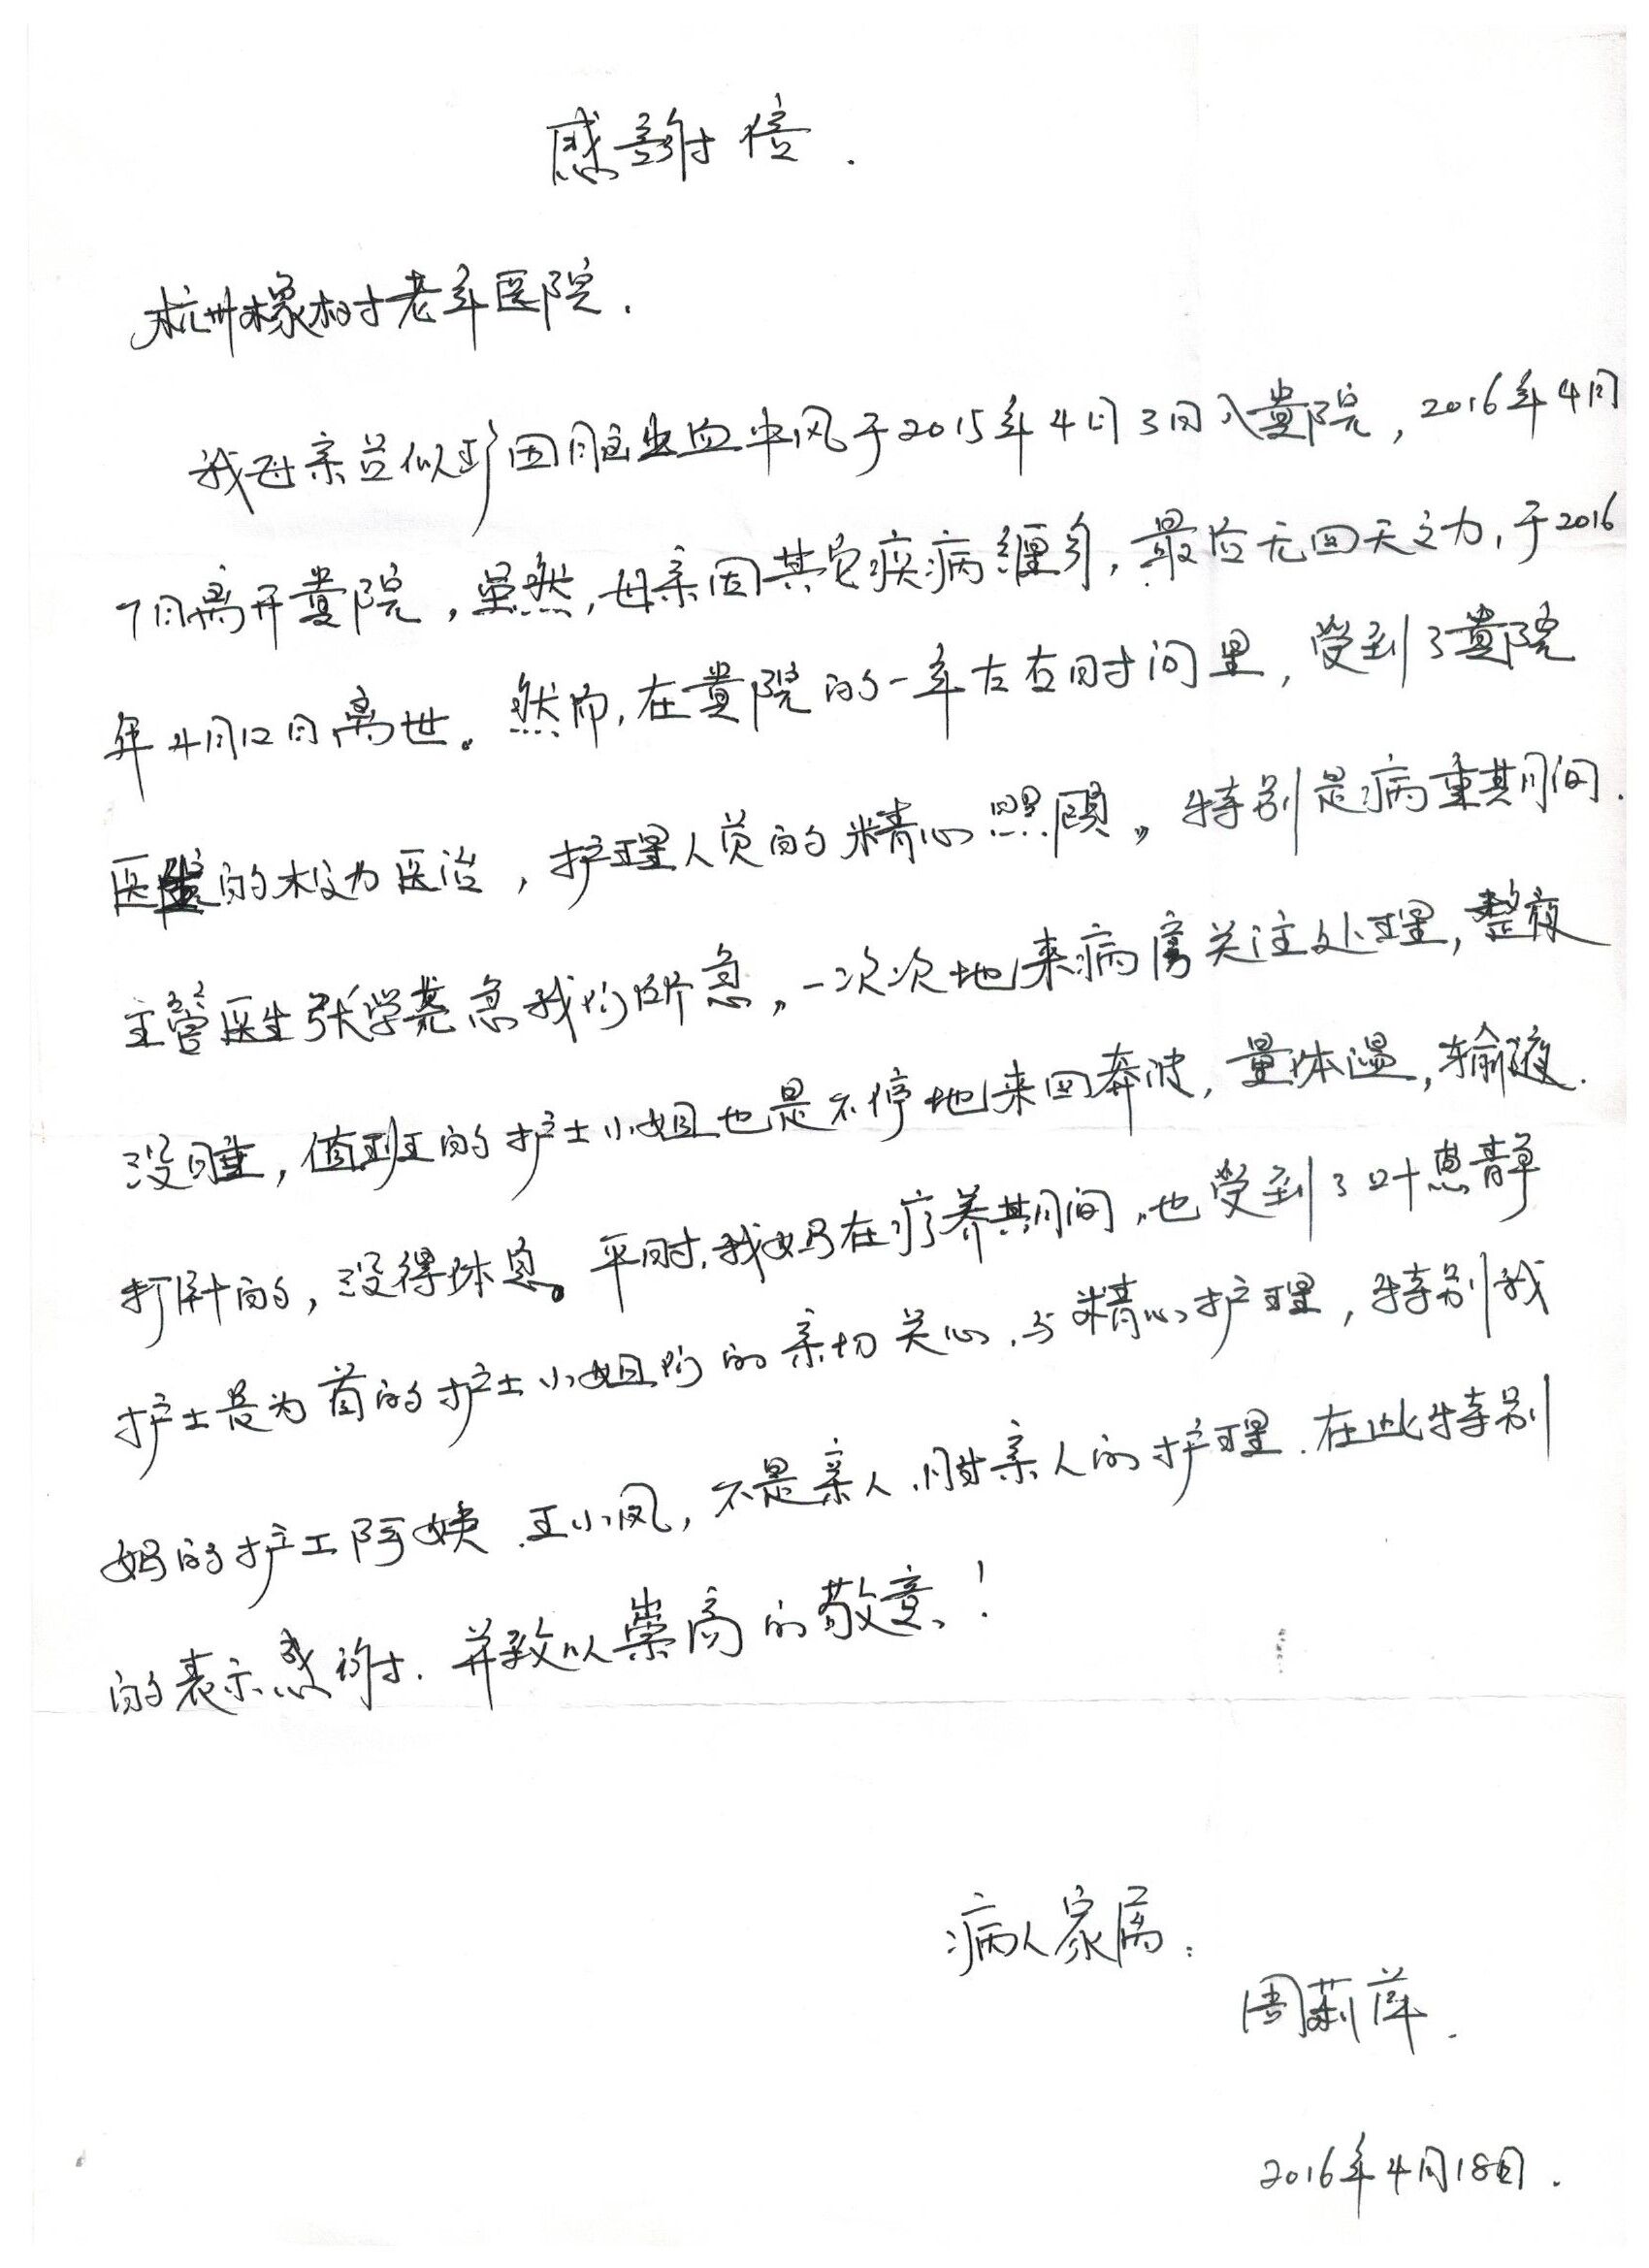 感謝信.
杭州橡树老年医院.
我母亲兰似珍因脑出血中风于2015年4月3日入貴院，2016年4月
7日离开貴院，虽然，母亲因其它疾病缠身，最后无回天之力，于2016
年4月12日离世。然而，在貴院的一年左右时间里，受到了貴院
医生的极为医治，护理人员的精心照顾。特别是病重期间.
主管医生张学尧急我们所急，一次次地来病房关注处理，整夜
没睡，值班的护士小姐也是不停地来回奔波，量体温，输液.
打针的，没得休息。平时，我妈在疗养期间，也受到了叶惠静
护士长为首的护士小姐们的亲切关心，与精心护理，特别我
妈的护工阿姨.王小凤，不是亲人，胜亲人的护理.在此特别
的表示感谢.并致以崇高的敬意！
病人家属：
周莉萍.
2016年4月18日.